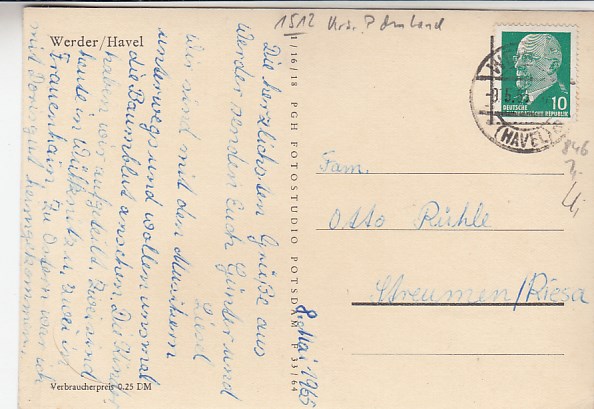 1512 Krs. Pdm Land
Werder/Havel
Die herzlichsten Grüße aus
Werder senden Euch Günter und
Liesel
Wir sind mit den Muschern
unterwegs und wollen uns mal
die Baumblüt ansehen. Die Kinder
haben wir aufgeteilt. Zwei sind
heute in Wülknitz u. zwei in
Frauenhain. Zu Ostern war ich
mit heimgekommen.
Verbraucherpreis 0,25 DM
I/16/18 PGH FOTOSTUDIO POTSDAM P 33/64
8. Mai 1965
10
DEUTSCHE
DEMOKRATISCHE REPUBLIK
(HAVEL)
846
Fam.
Otto Rühle
Streumen/Riesa